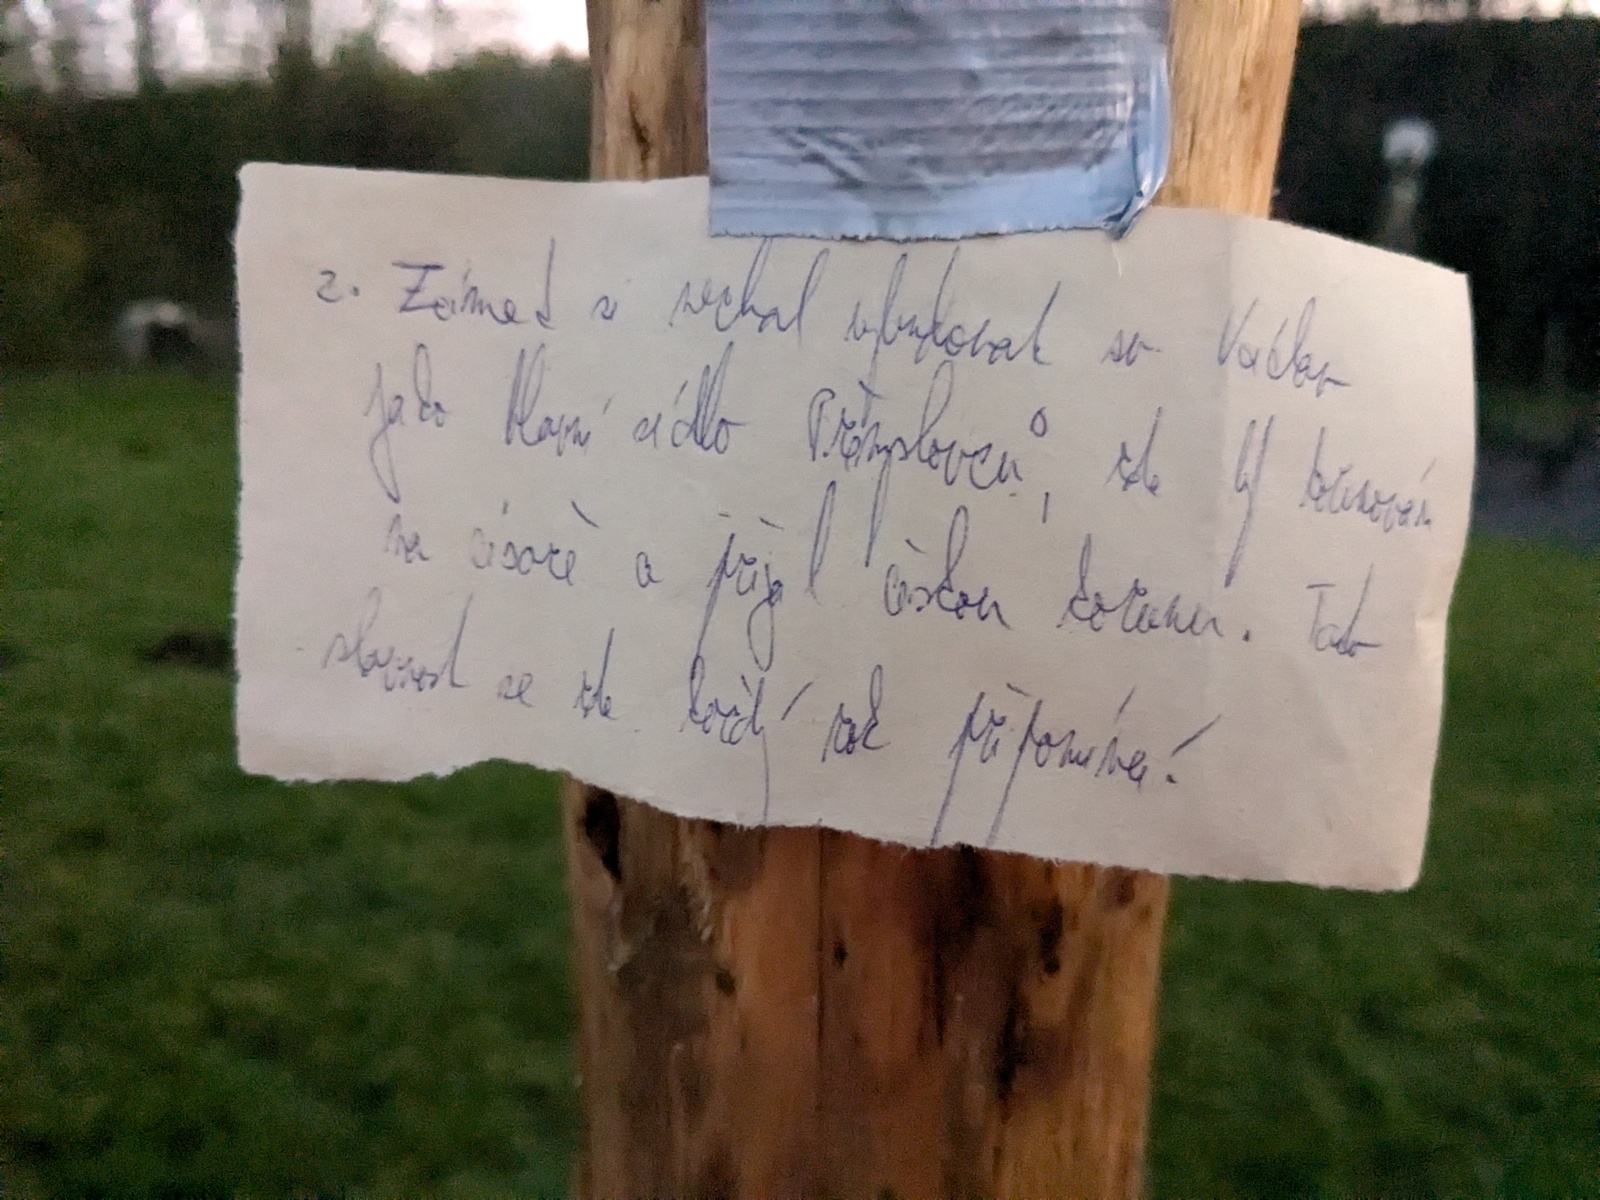 2. Zámek si nechal vybudovat sv. Václav
jako hlavní sídlo Přemyslovců, zde byl korunován
na císaře a přijal českou korunu. Tato
slavnost se zde každý rok připomíná!